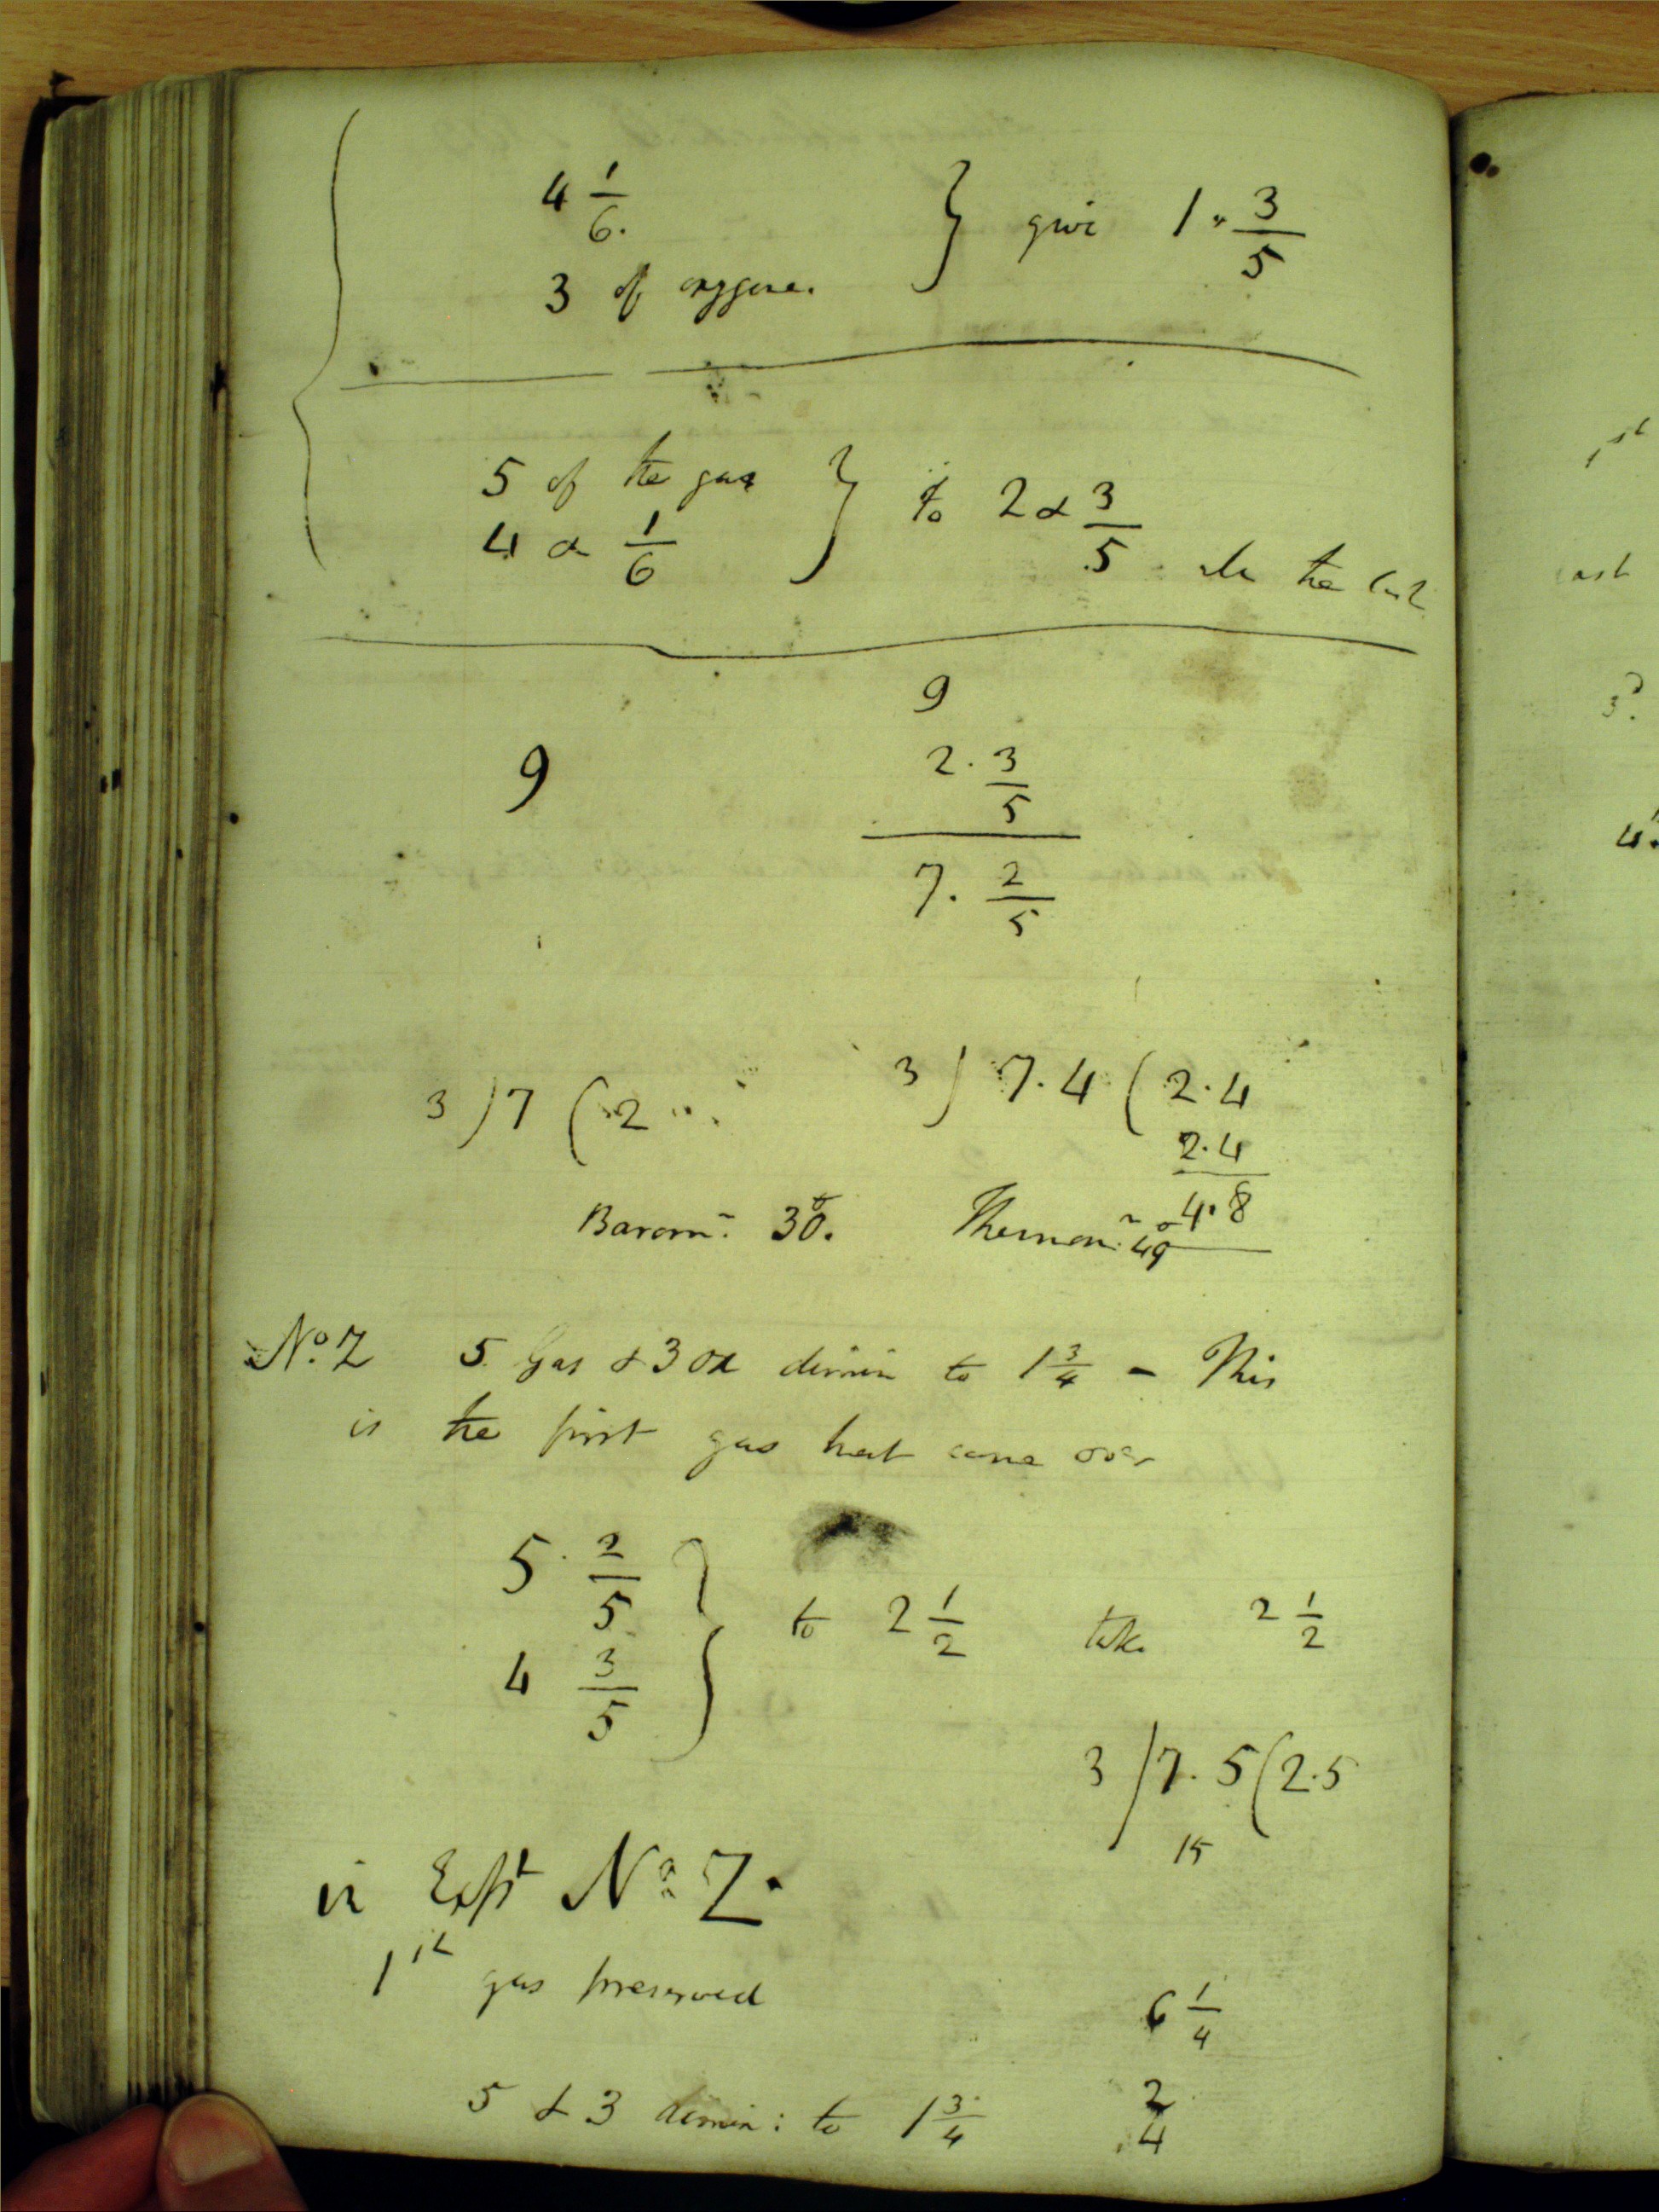 4 1/6.
3 of oxygene. } give 1 . 3/5
5 of the gas
4 & 1/6 } to 2 & 3/5 in the last
9
9
2 . 3/5
7 . 2/5
3 ) 7 ( 2
3 ) 7.4 ( 2.4
2.4
4.8
Barom.r 30. Thermom.r 49
No. Z 5 Gas & 3 ox dimin to 1 3/4 - This
is the first gas that came over
5 . 2/5
4 3/5 } to 2 1/2 take 2 1/2
3 ) 7.5 ( 2.5
15
in Expt No. Z.
1st gas preserved
6 1/4
5 & 3 dimin: to 1 3/4
2
4
1st
last
3d.
4.